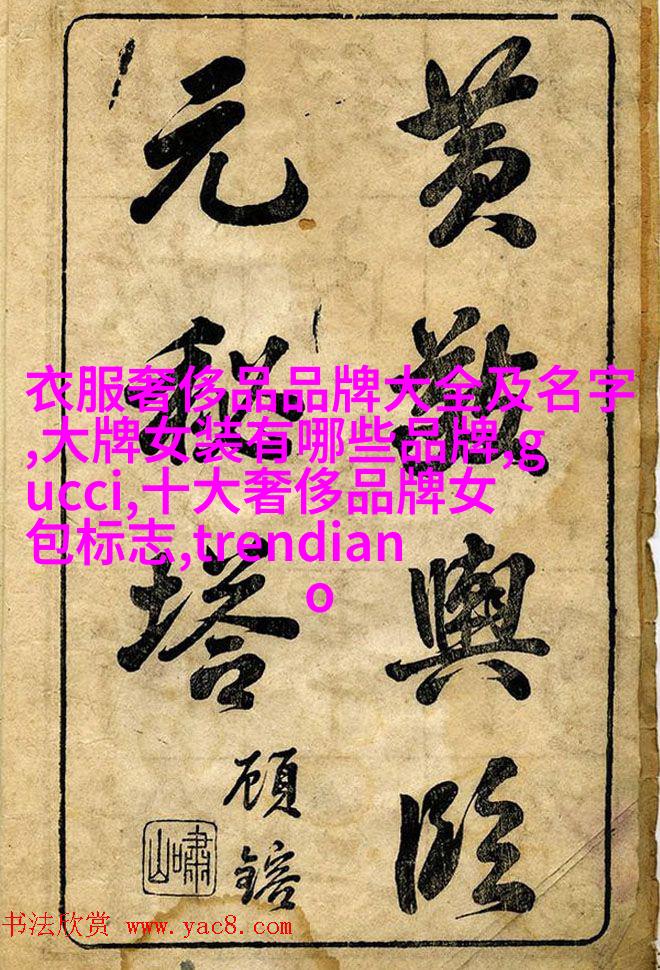 黄敬輿臨
元秘塔
頋鎔
嘯山
衣服奢侈品品牌大全及名字
,大牌女装有哪些品牌,g
ucci,十大奢侈品牌女
包标志,trendian
o
书法欣赏 www.yac8.com